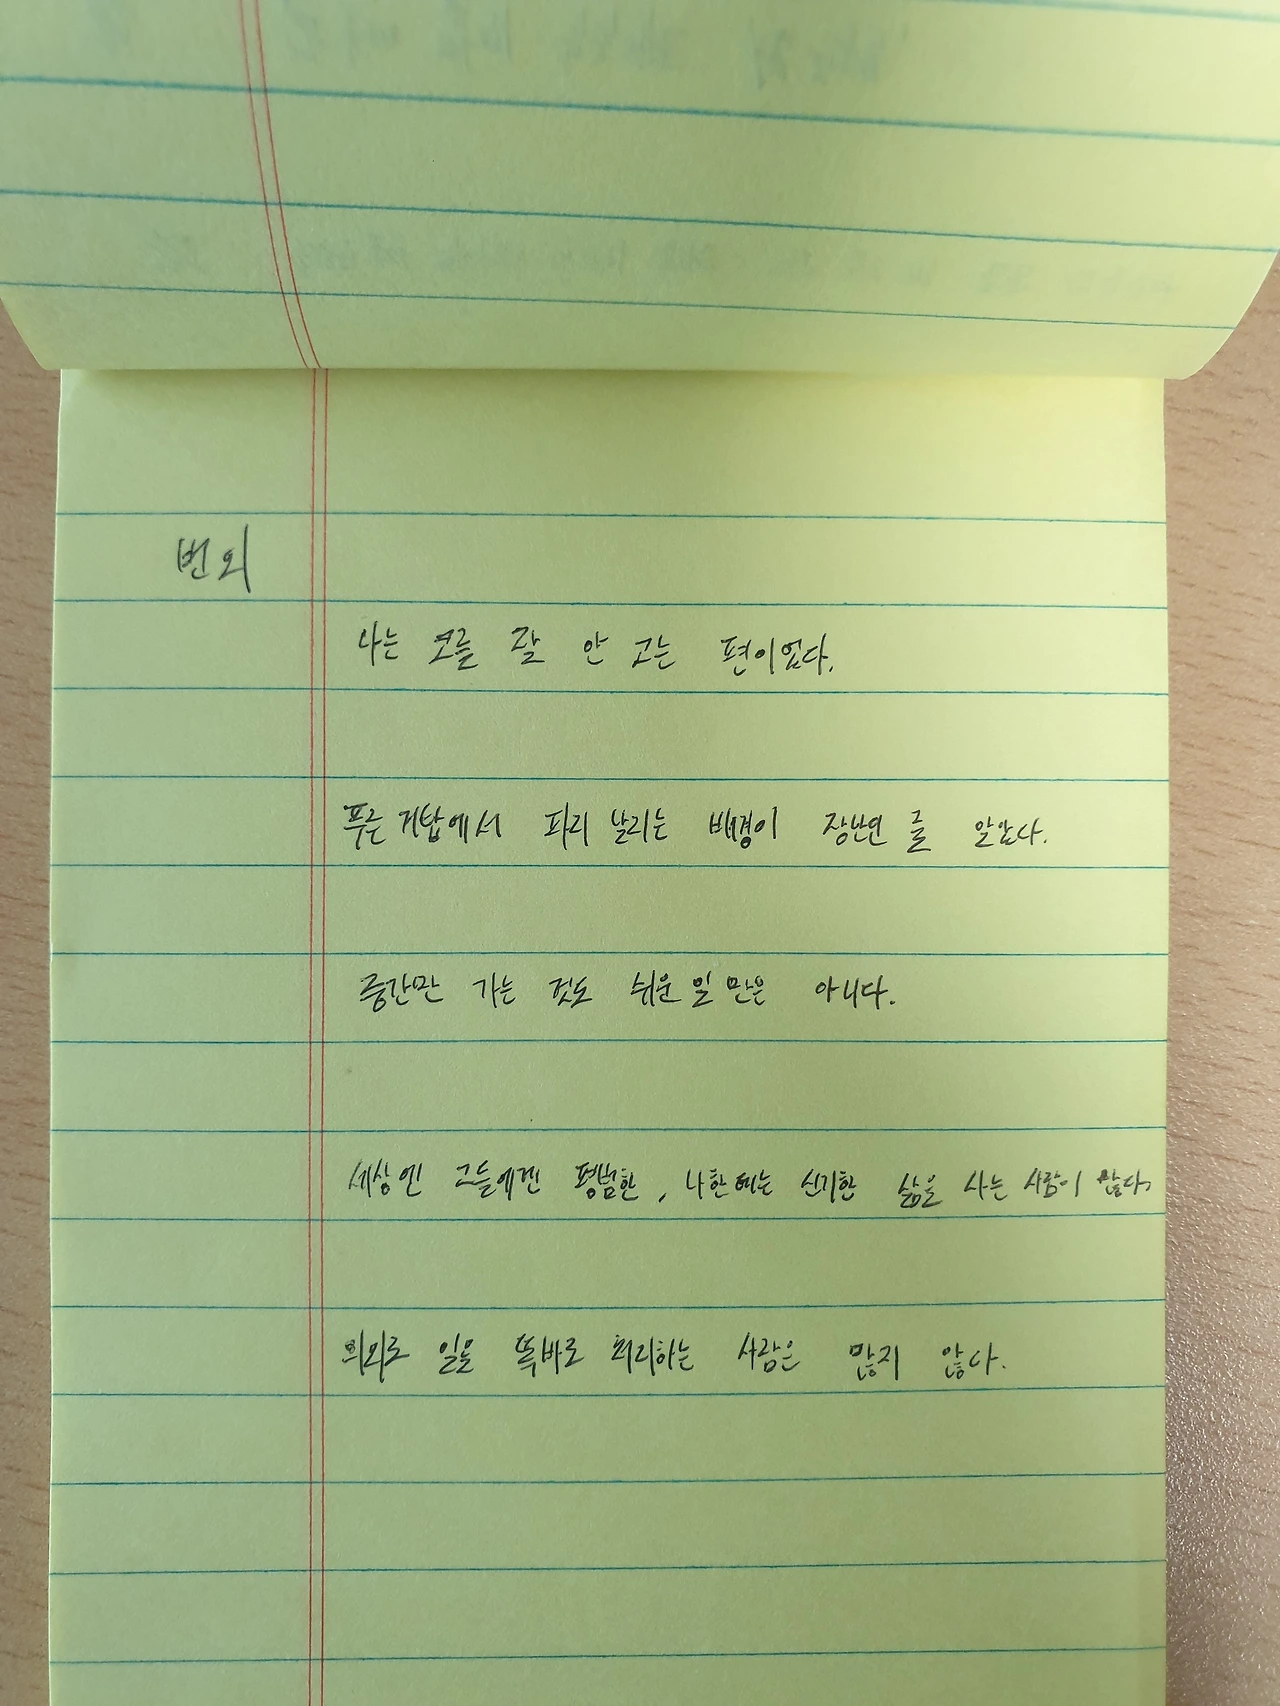 번외
나는 코를 잘 안 고는 편이었다.
푸른거탑에서 파리 날리는 배경이 장난인 줄 알았다.
중간만 가는 것도 쉬운 일만은 아니다.
세상엔 그들에겐 평범한, 나한테는 신기한 삶을 사는 사람이 많다.
의외로 일을 똑바로 처리하는 사람은 많지 않다.